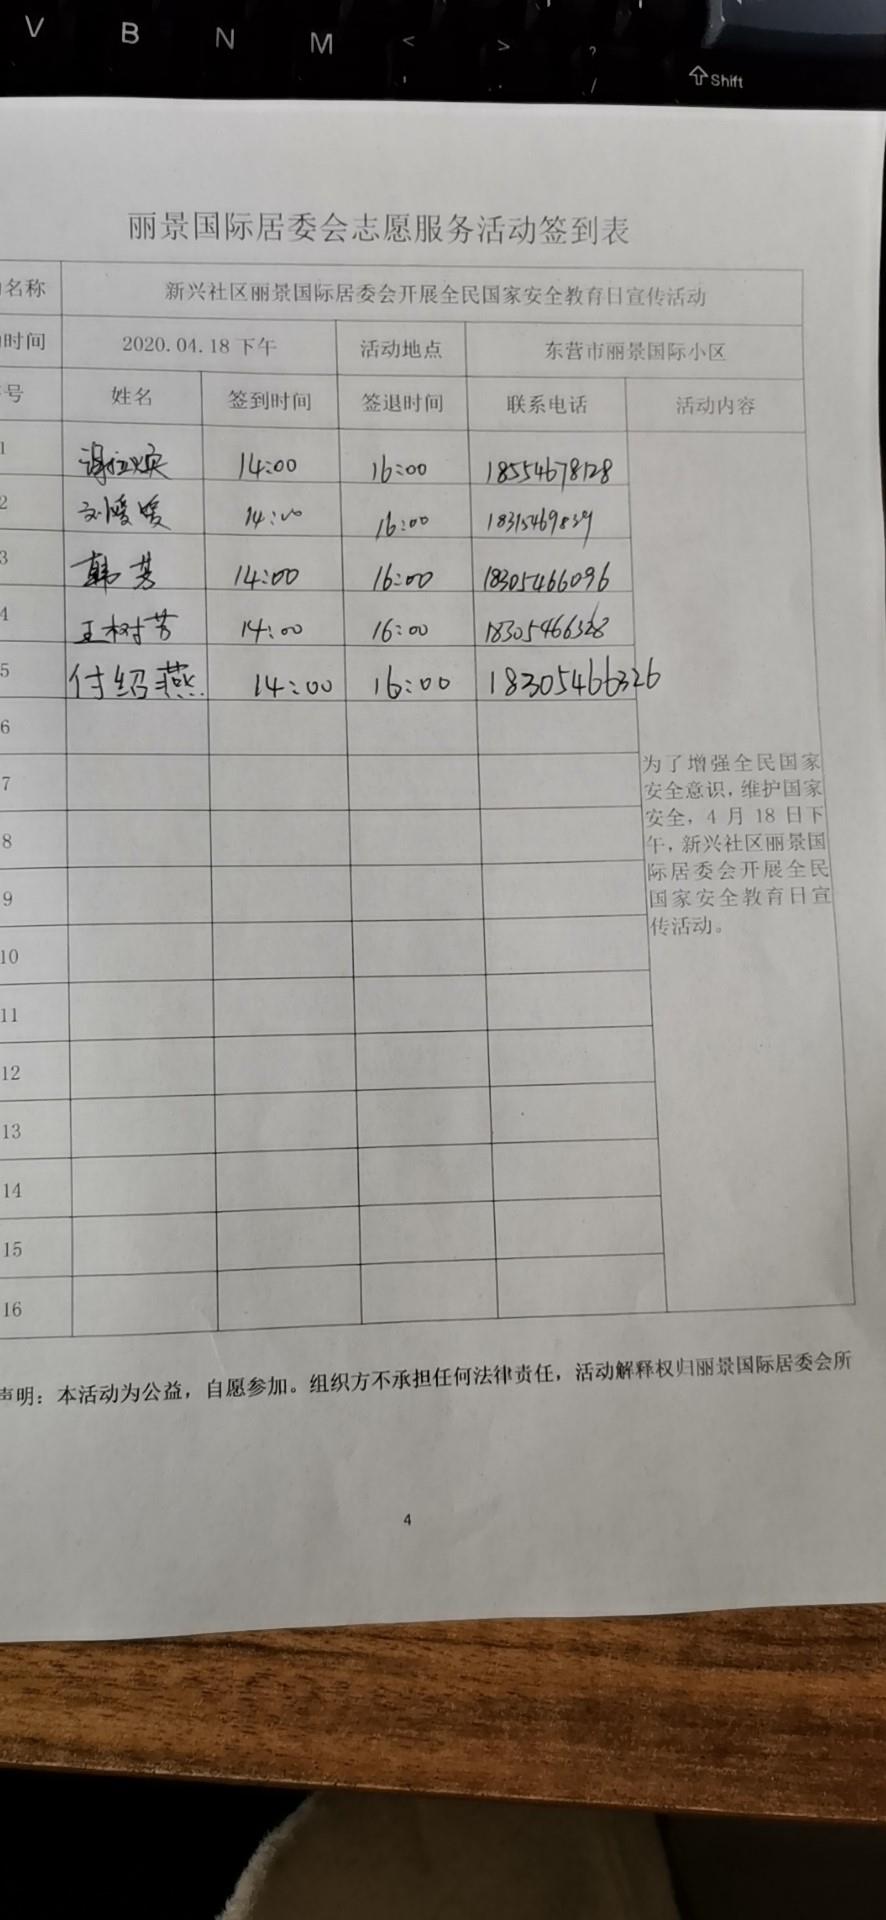 V B N M < > ?
, . / Shift
丽景国际居委会志愿服务活动签到表
名称 新兴社区丽景国际居委会开展全民国家安全教育日宣传活动
时间 2020.04.18下午 活动地点 东营市丽景国际小区
号 姓名 签到时间 签退时间 联系电话 活动内容
1 14:00 16:00 18554678128
2 刘媛媛 14:00 16:00 18315469839
3 韩芳 14:00 16:00 18305466096
4 王树芳 14:00 16:00 18305466328
5 付绍燕 14:00 16:00 18305466326
6
7
8
9
10
11
12
13
14
15
16
为了增强全民国家
安全意识，维护国家
安全，4月18日下
午，新兴社区丽景国
际居委会开展全民
国家安全教育日宣
传活动。
声明：本活动为公益，自愿参加。组织方不承担任何法律责任，活动解释权归丽景国际居委会所
4